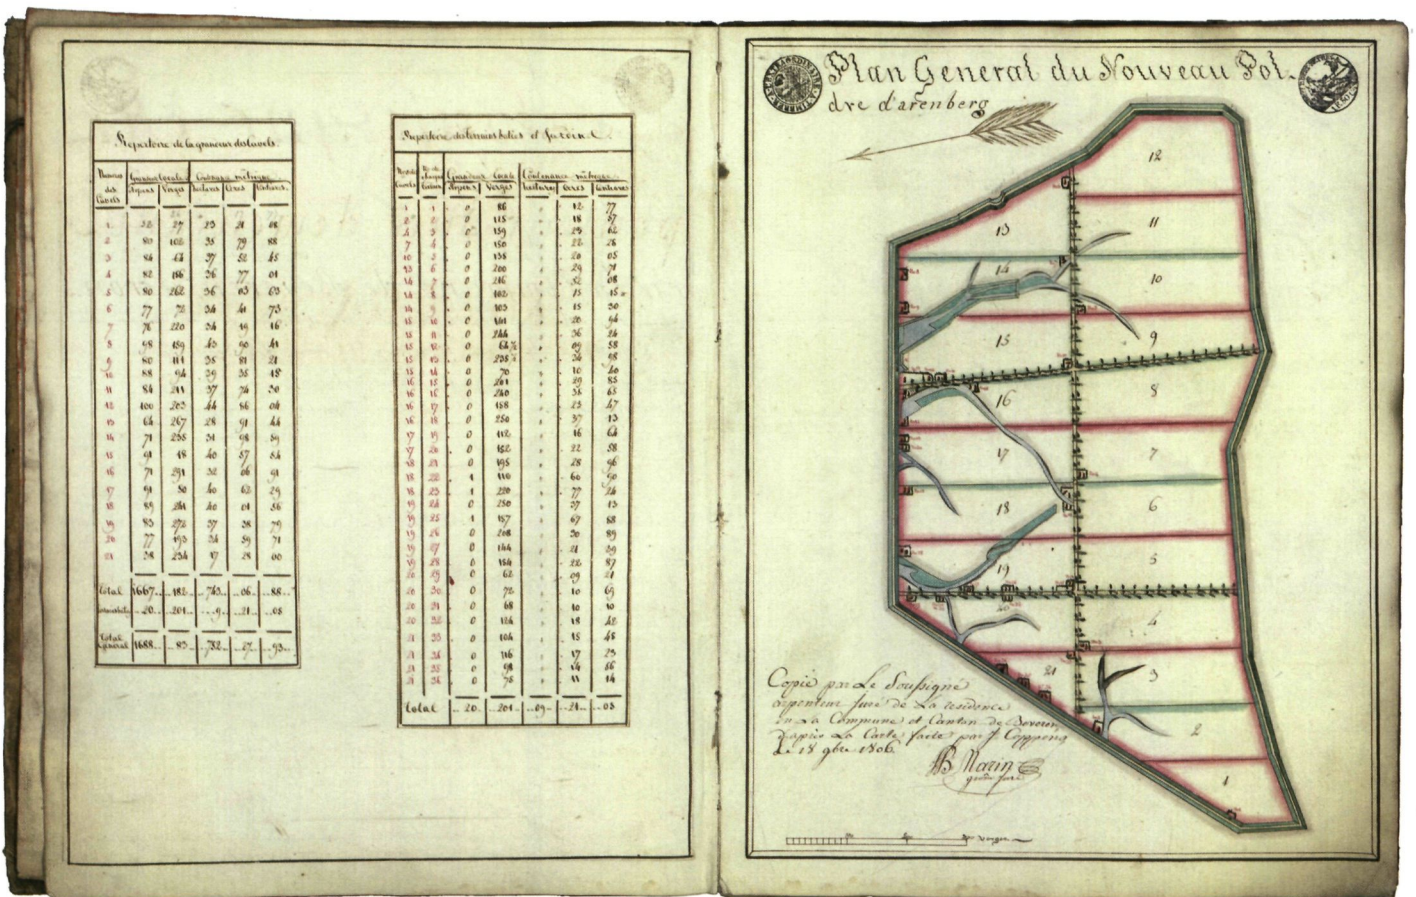 Repertoire de la grandeur des Cavels.
Numeros des Cavels
Grandeur Locale
Contenance métrique
Arpens Verges Hectares Ares Centiares
1 52 27 23 21
2 80 102 35 79 88
3 84 64 37 52 45
4 82 186 36 77 01
5 80 262 36 03 63
6 77 72 34 41 73
7 76 220 34 19 16
8 98 159 43 90 41
9 80 111 35 81 21
10 88 94 39 35 18
11 84 211 37 74 30
12 100 203 44 86 04
13 64 267 28 91 44
14 71 235 31 98 59
15 91 18 40 57 54
16 71 291 32 06 91
17 91 50 40 62 29
18 89 241 40 01 56
19 83 272 37 38 79
20 77 193 34 59 71
21 38 234 17 28 00
Total 1667 182 743 06 88
20 201 9 21 08
Total General 1688 83 752 27 93
Repertoire des terrains batis et Jardins
Grandeur Locale Contenance métrique
Arpens Verges Hectares Ares Centiares
1 1 0 86 12 77
2 2 0 125 18 57
0 159 23 62
7 4 0 150 22 28
10 5 0 135 20 05
13 6 0 200 29 71
14 7 0 216 32 08
14 8 0 102 15 15
14 9 0 103 15 30
15 10 0 141 20 94
15 11 0 244 36 24
15 12 0 09 58
15 13 0 34 98
15 14 0 70 10 40
16 15 0 201 29 85
16 16 0 240 35 65
16 17 0 158 23 47
16 18 0 250 37 13
17 19 0 112 16 64
17 20 0 152 22 58
18 21 0 195 28 96
18 22 1 110 60 90
18 23 1 220 77 24
19 24 0 250 37 13
19 25 1 157 67 88
19 26 0 208 30 89
19 27 0 144 21 39
19 28 0 154 22 87
20 29 0 62 09 21
20 30 0 72 10 69
20 31 0 68 10 10
20 32 0 124 18 42
21 33 0 104 15 45
21 34 0 116 17 23
21 35 0 98 14 56
21 36 0 75 11 14
Total 20 201 09 21 08
Plan General du Nouveau Pol-
dre d'arenberg
12
11
13
14
10
15
9
8
16
7
17
6
18
5
19
20
4
21
3
2
1
Copié par Le Soussigné
arpenteur juré de La residence
en La Commune et Canton de Beveren,
d'après La Carte faite par J. Coppens
Le 18 9bre 1806
Marin